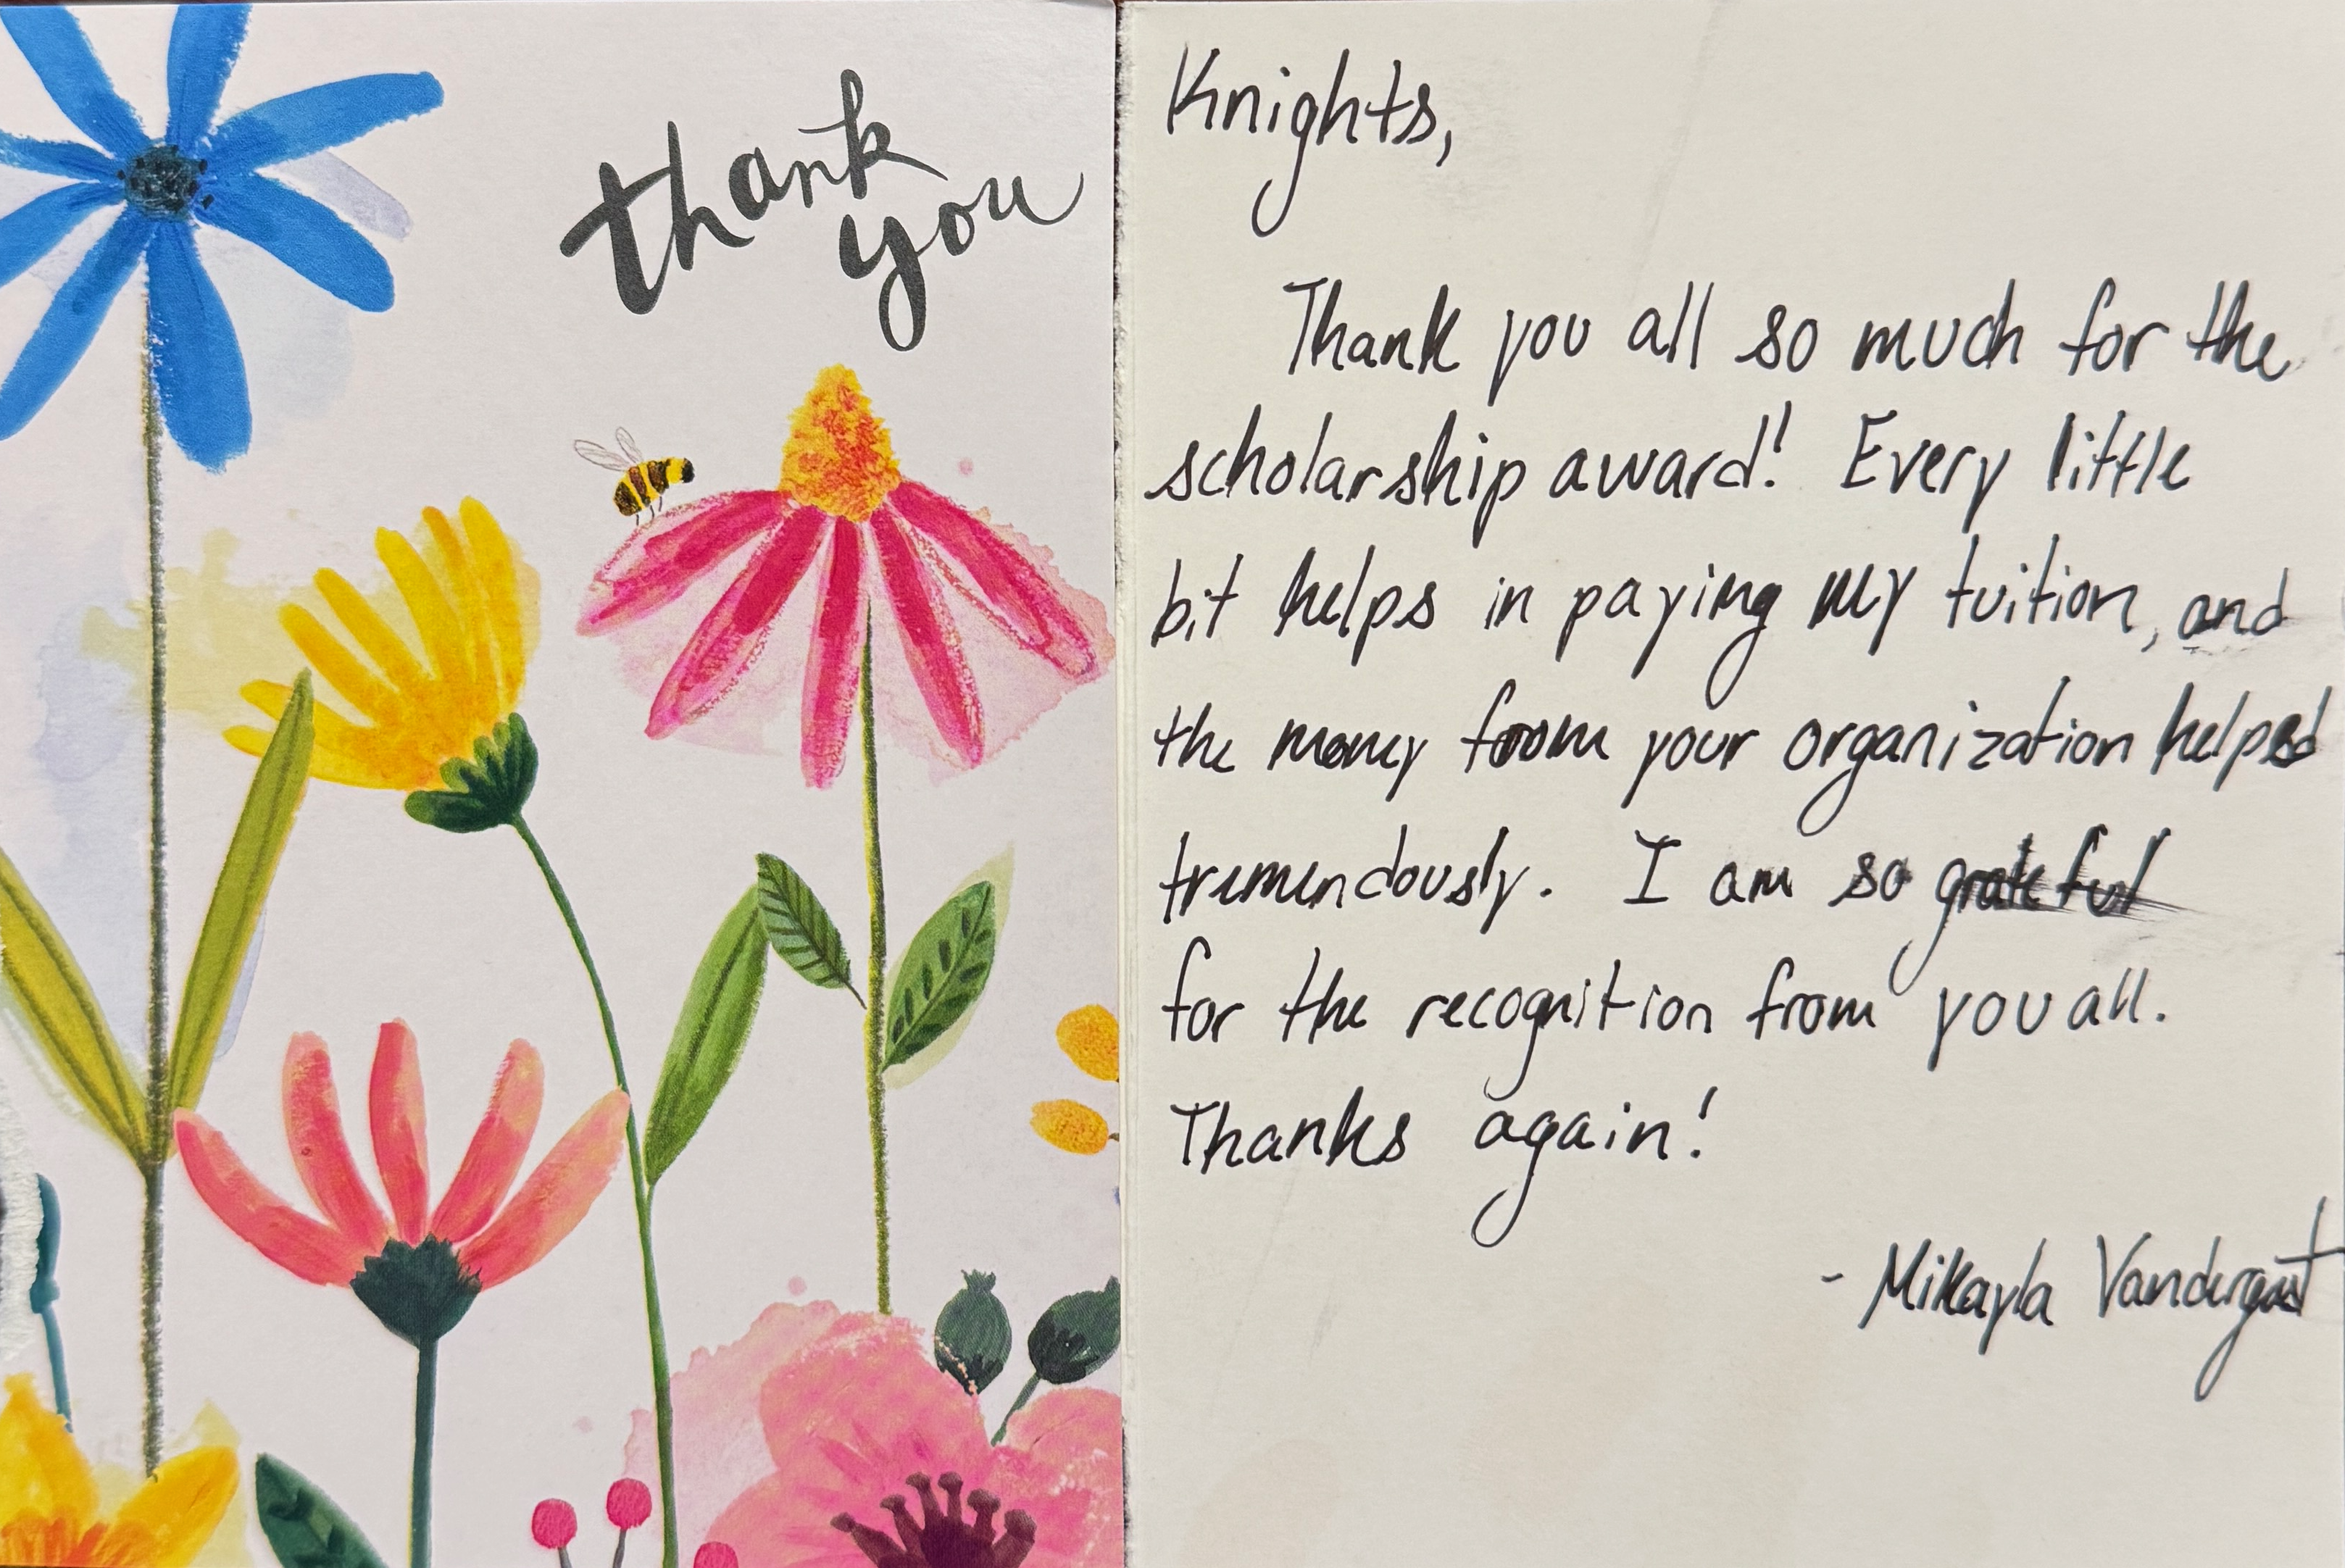 thank
you
Knights,
Thank you all so much for the
scholarship award! Every little
bit helps in paying my tuition, and
the money from your organization helped
tremendously. I am so grateful
for the recognition from you all.
Thanks again!
- Mikayla